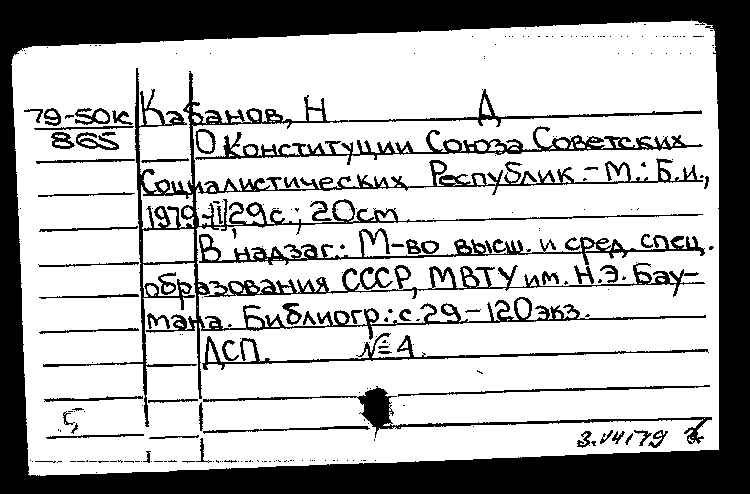 79-50к Кабанов, Н Д
865 О Конституции Союза Советских
Социалистических Республик.-М.: Б.и.,
1979.-[1],29с.; 20см.
В надзаг.: М-во высш. и сред. спец.
образования СССР, МВТУ им. Н.Э. Бау-
мана. Библиогр.: с.29-120экз.
ДСП. № 4.
5